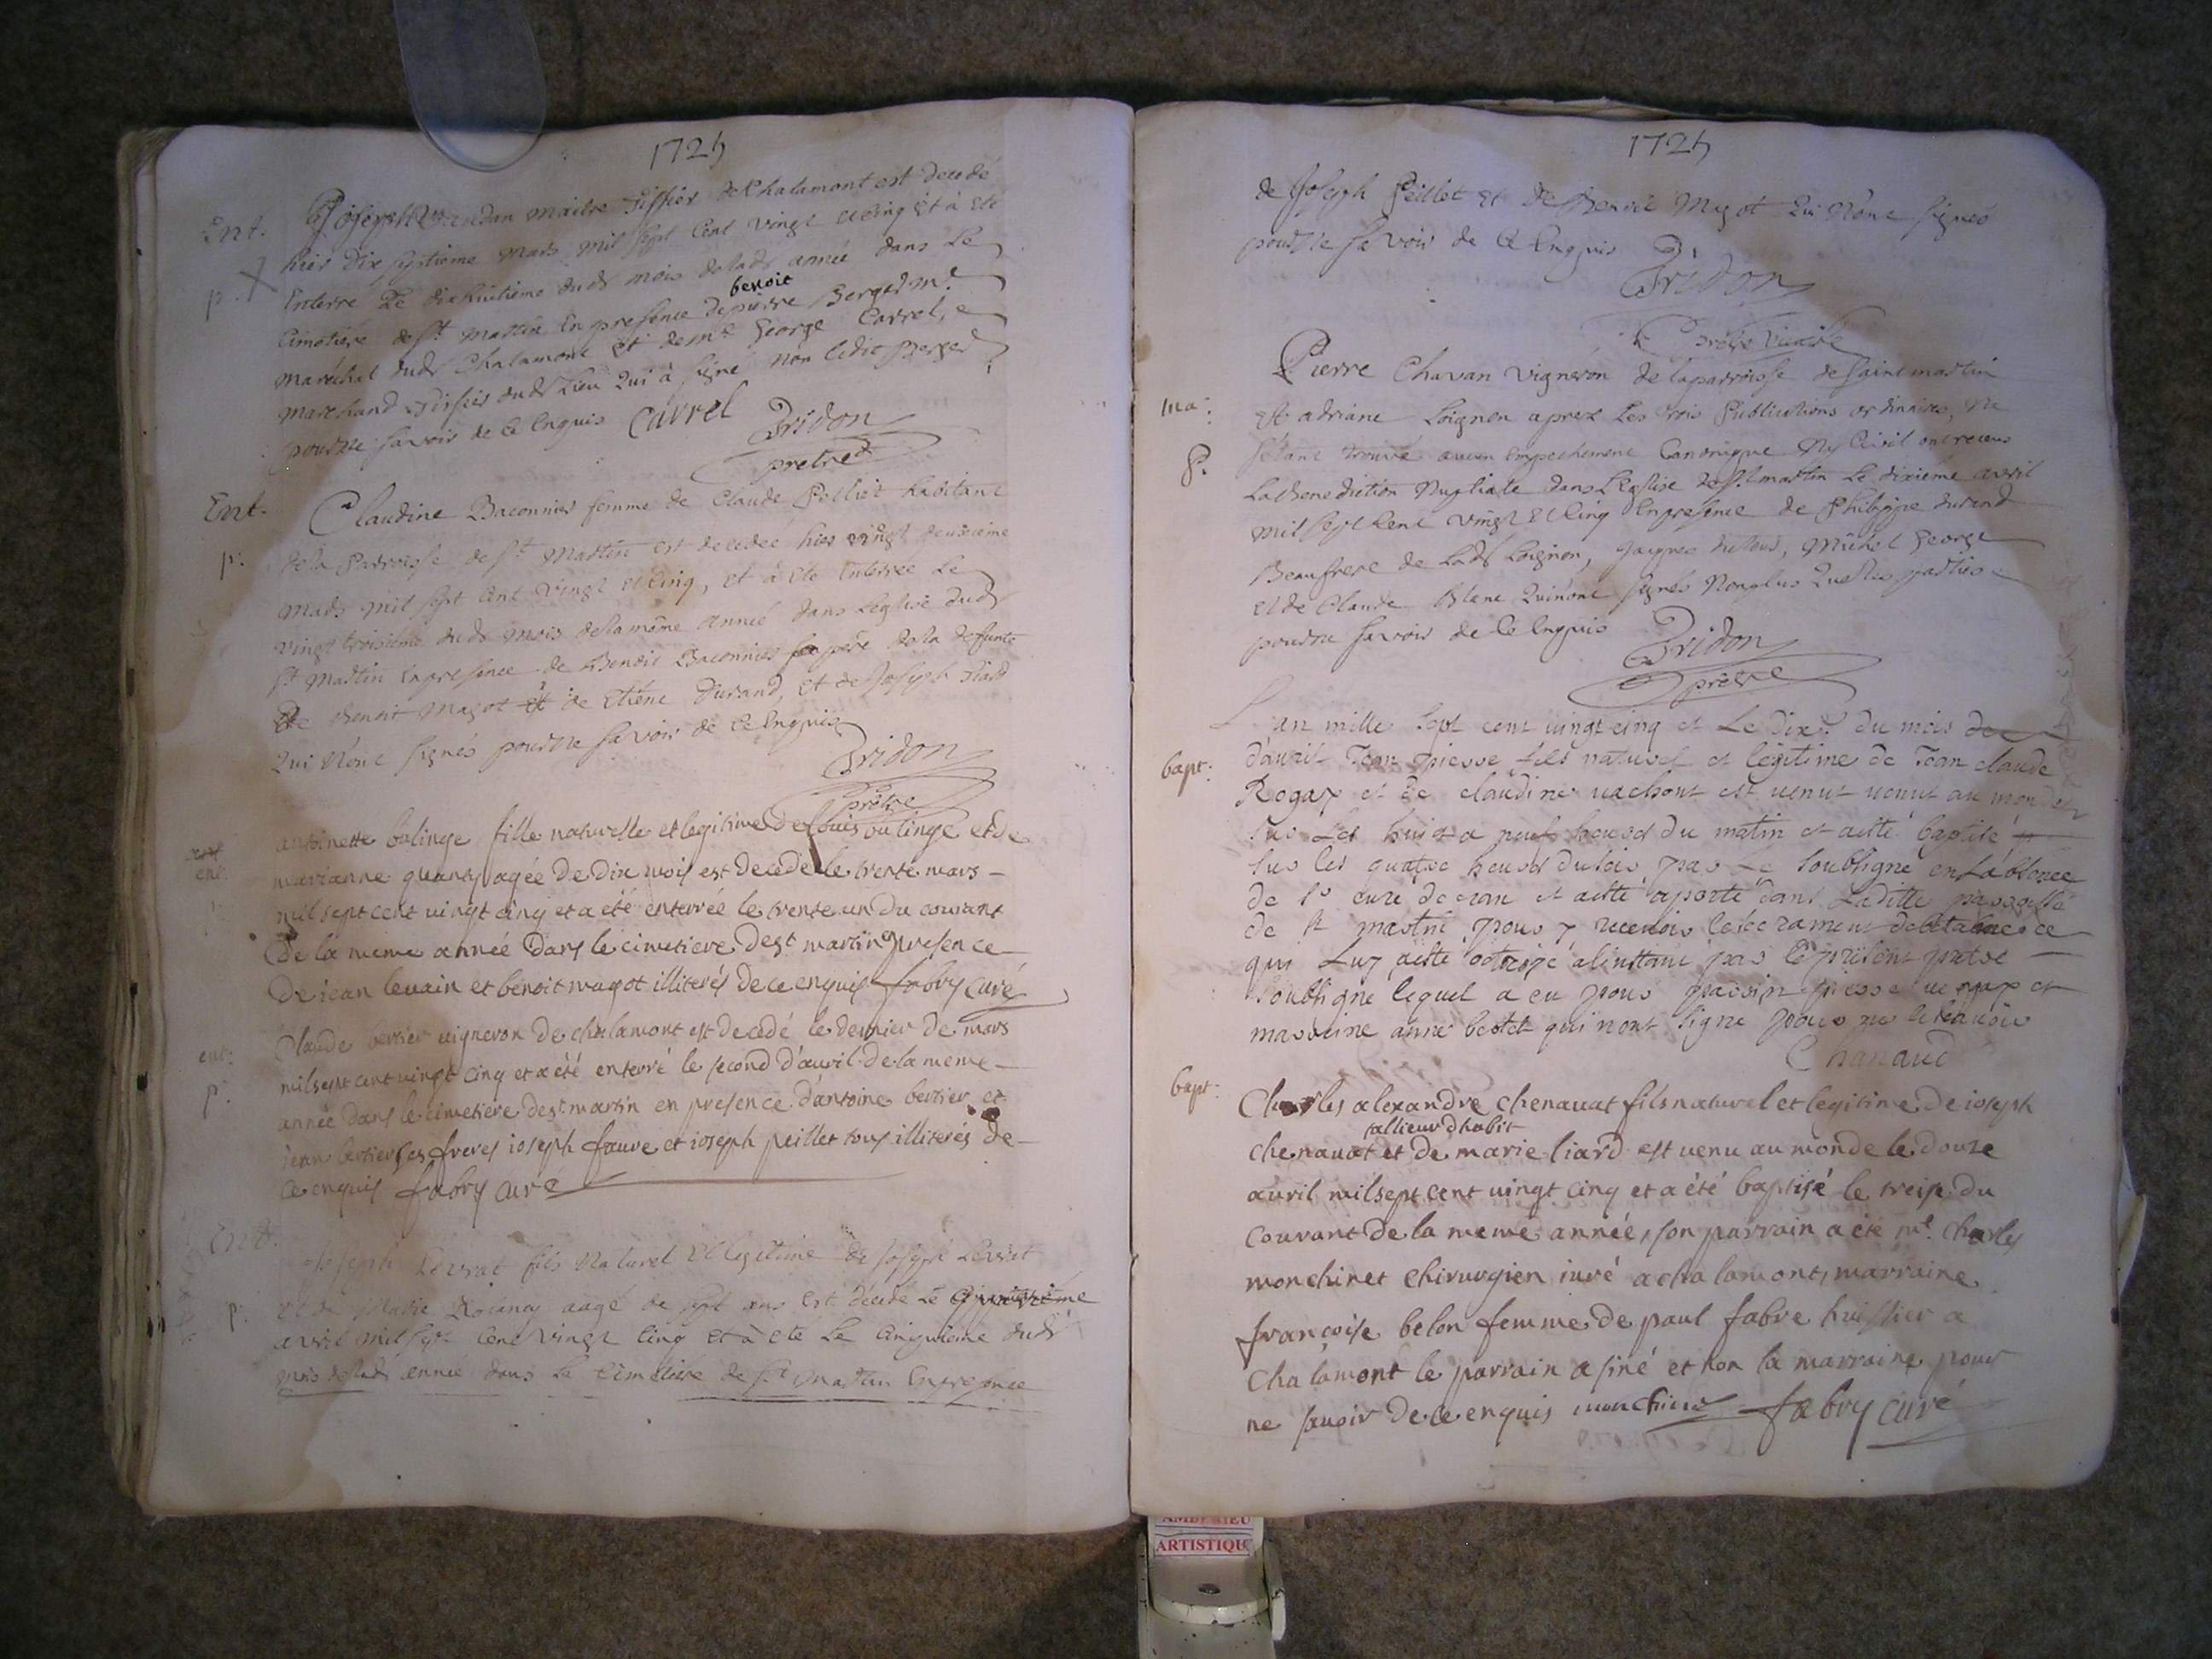 1725
Ent.
Joseph maitre tissier de Chalamont est decedé
hier dix septieme mars mil sept cent vingt et cinq et à ete
p.
Enterré Le dixhuitieme dud mois de lad année dans Le
benoit
Cimetiere de st. martin En presence de pierre Berger m.e
maréchal dud Chalamont et de mr George Carrel,
marchand dud Lieu Qui à signé non ledit Berger
pour ne savoir de ce Enquis Carrel Bridon
pretre
Ent.
Claudine Baconnier femme de Claude Pelliet habitant
p.
de la Parroisse de st. Martin est decedée hier vingt deuxieme
mars mil sept cent vingt et cinq, et à ete Enterrée Le
vingt troisieme dud mois de la même année dans Leglise dud
st Martin En presence de Benoit Baconnier père de la defunte
De Benoit Magot et de Etiene Durand, et de Joseph
Qui N'ont signés pour ne savoir de ce Enquis
Bridon
prêtre
antoinette bolinge fille naturelle et legitime de louis bolinge et de
ent.
marianne quanty agée de dix mois est decedé le trente mars
mil sept cent vingt cinq et a été enterrée le trente un du courant
de la meme année dans le cimetiere de st martin en presence
de iean levain et benoit magot illiterés de ce enquis fabry curé
ent:
Claude bertier vigneron de chalamont est decedé le dernier de mars
p.
mil sept cent vingt cinq et a été enterré le second d'auvril de la meme
année dans le cimetiere de st martin en presence d'antoine bertier et
iean bertier ses freres ioseph fauve et ioseph peillet tous illiterés de
ce enquis fabry curé
Ent.
Joseph Levrat fils Naturel et legitime de Joseph Levrat
p.
et de Marie aagé de sept ans est décédé le quatrieme
avril mil sept cent vingt cinq et à eté Le cinquieme dud
mois de lad année dans Le cimetiere de st Martin En presence
1725
de Joseph Peillet et de Benoit Magot Qui N'ont signés
pour ne savoir de ce Enquis
Bridon
Prêtre vicaire
Pierre Chavan vigneron de la parroisse de saint martin
ma:
Et adriane Loignon aprez Les trois Publications ordinaires, Ne
p.
s'étant trouvé aucun Empechement Canonique Ny Civil ont receus
La Benediction Nuptiale dans L'église de st martin Le dixieme avril
mil sept cent vingt et cinq En presence de Philippe durand
Beaufrere de Lad Loignon, Michel George
et de Claude Blanc Qui n'ont signés Nonplus Que les parties
pour ne savoir de ce Enquis Bridon
prêtre
Lan mille sept cent vingt cinq et Le dix.e du mois
bapt:
dauril Jean pierre fils naturel et légitime de Jean claude
Rogax et de claudine vachont est venut venut au monde
sur Les huit a neuf heures du matin et aesté baptisé
sur les quatre heures du soir par Le soubsigné en Labsence
de sr curé et aesté aporté dans Laditte parroisse
de st martin pour y recevoir
qui Luy aesté octroyé alinstant par le présent pretre
soubsigne lequel a eu pour parrin pierre et
marraine anne qui nont signe pour ne le scavoir
Chanaud
bapt:
Charles alexandre chenavat fils naturel et legitime de ioseph
tallieur dhabit
chenavat et de marie liard est venu au monde le douze
auril mil sept cent vingt cinq et a été baptisé le treise du
courant de la meme année, son parrain a été mr. charles
monchinet chirurgien iuré a chalamont, marraine
françoise belon femme de paul fabre huissier a
chalamont le parrain a siné et non la marraine pour
ne sauoir de ce enquis monchinet fabry curé
ARTISTIQU